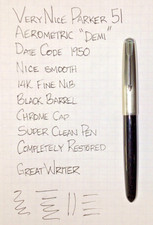 Very Nice Parker 51
Aerometric "Demi"
Date Code 1950
Nice smooth
14K Fine Nib
Black Barrel
Chrome Cap
Super Clean Pen
Completely Restored
Great Writer